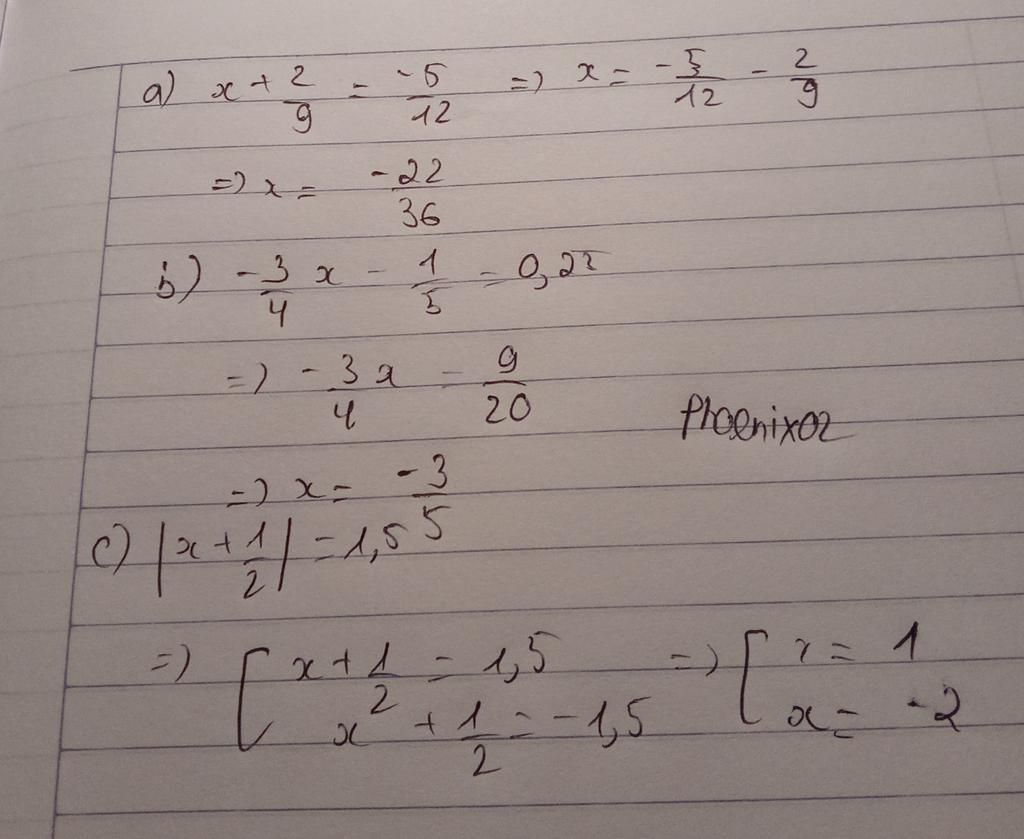 a) x + 2/9 = -5/12 => x = -5/12 - 2/9
=> x = -22/36
b) -3/4 x - 1/5 = 0,25
=> -3/4 x = 9/20
Phoenix02
=> x = -3/5
c) |x + 1/2| = 1,5
=> [ x + 1/2 = 1,5 => [ x = 1
x + 1/2 = -1,5 x = -2